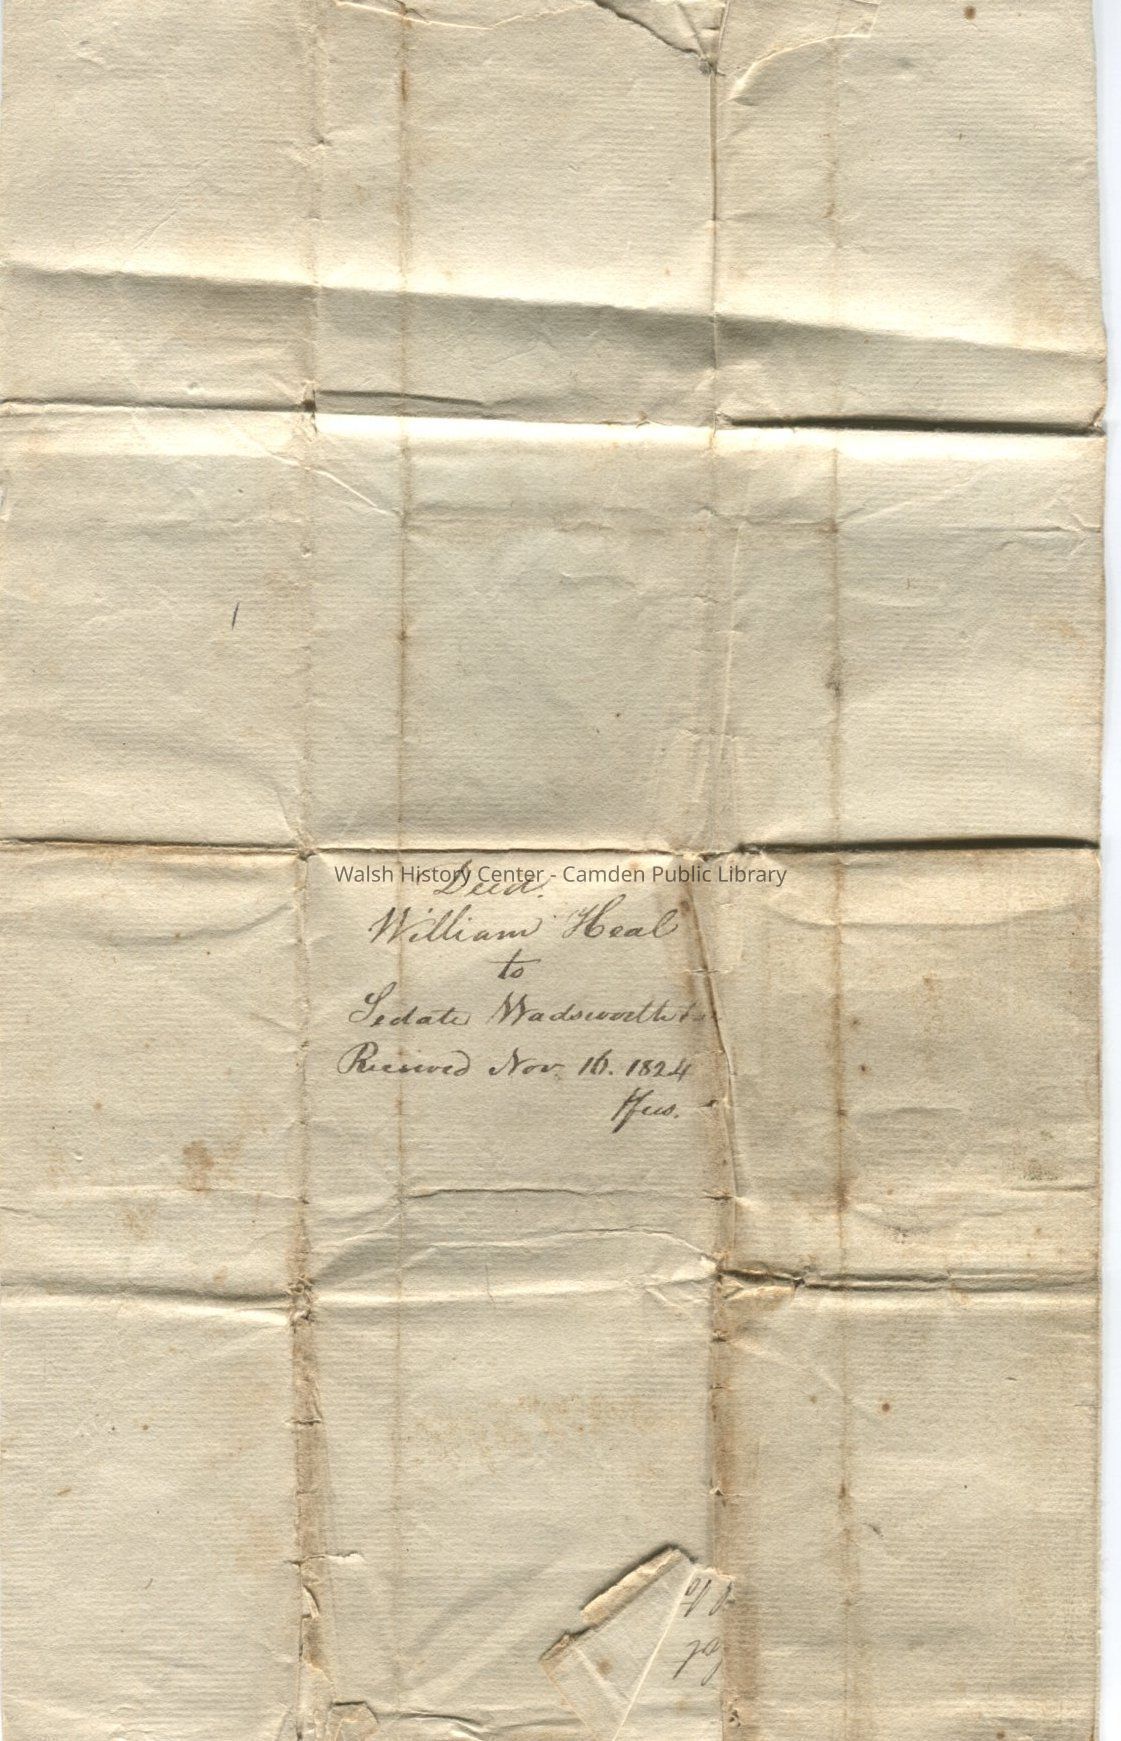 Walsh History Center - Camden Public Library
Deed.
William Heal
to
Sedate Wadsworth
Received Nov. 16. 1824